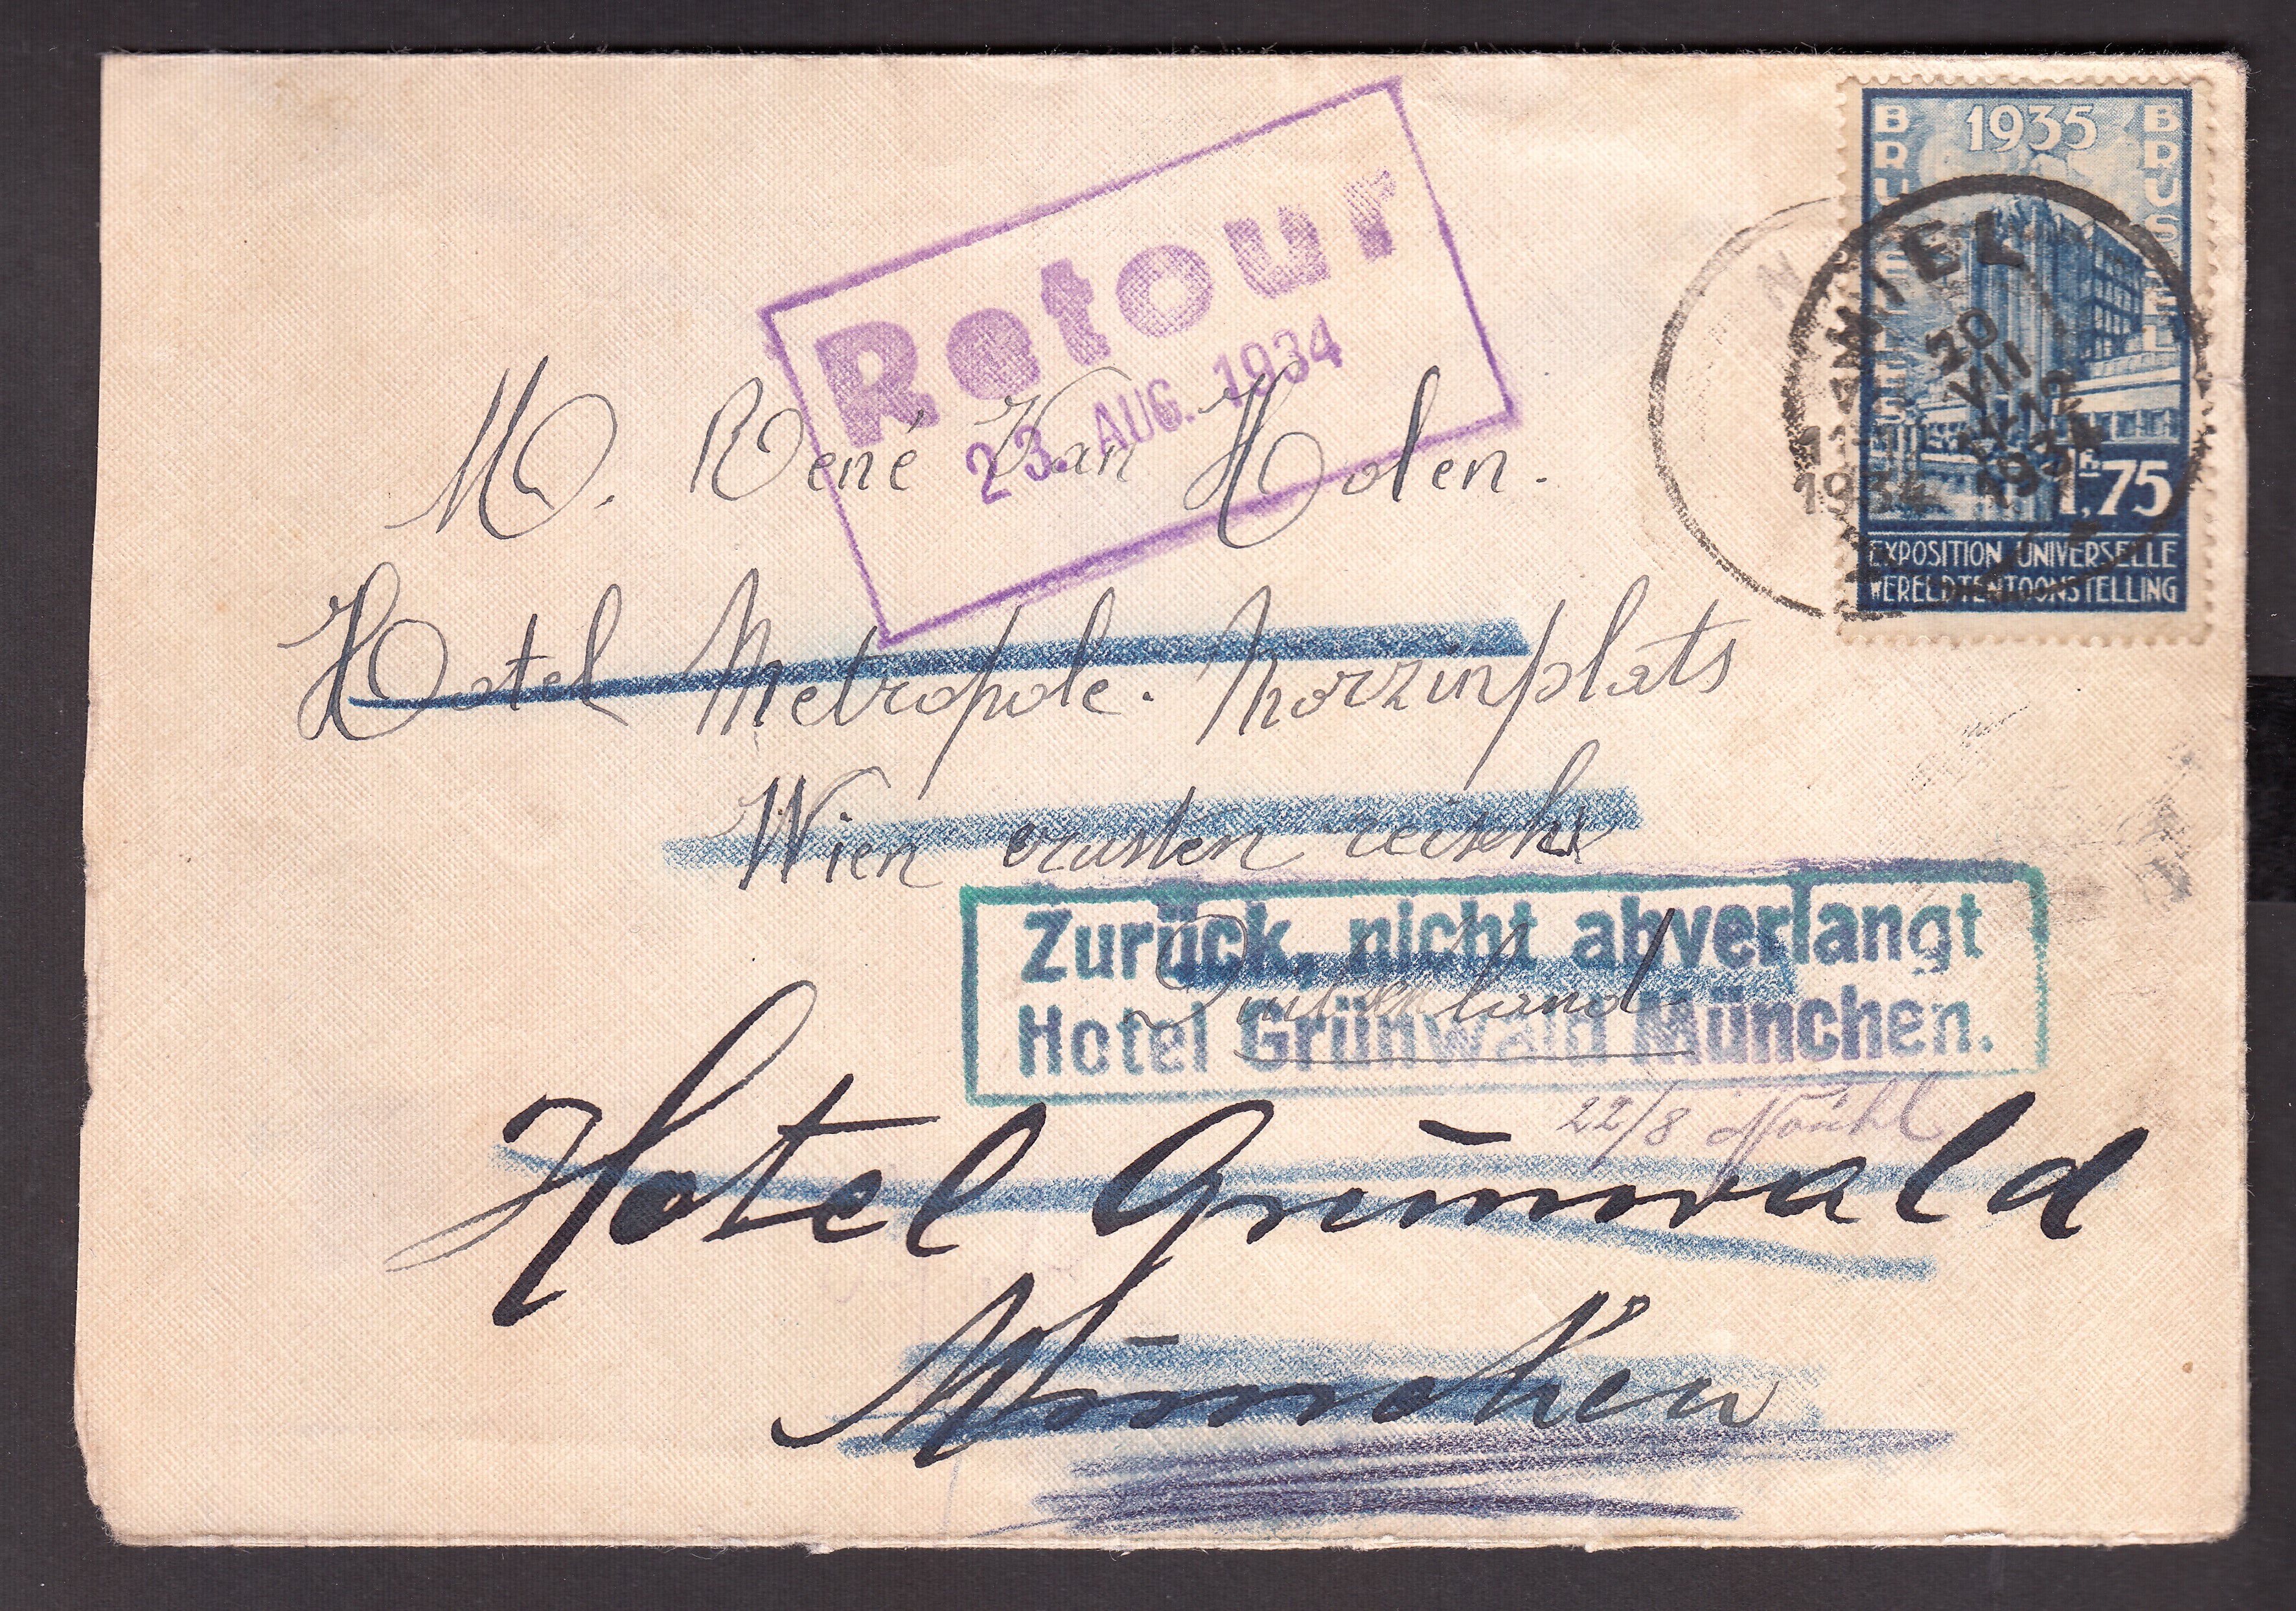 1935
BRUSSEL
Retour
23. AUG. 1934
NIEL
30
VII
1934
1934
1F,75
EXPOSITION UNIVERSELLE
WERELDTENTOONSTELLING
M. René Van Holen.
Hotel Metropole. Morzinplats
Wien
Zurück, nicht abverlangt
Hotel Grünwald München.
22/8
Hotel Grünwald
München